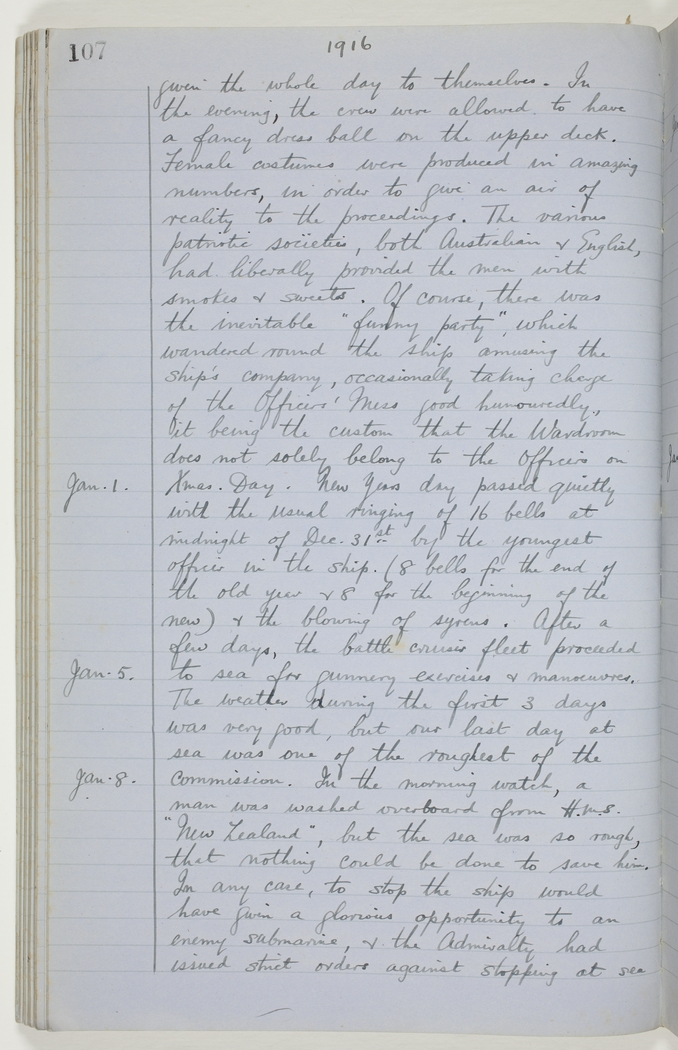 107
1916
given the whole day to themselves. In
the evening, the crew were allowed to have
a fancy dress ball on the upper deck.
Female costumes were produced in amazing
numbers, in order to give an air of
reality to the proceedings. The various
patriotic societies, both Australian & English,
had liberally provided the men with
smokes & sweets. Of course, there was
the inevitable "funny party", which
wandered round the ship amusing the
ship's company, occasionally taking charge
of the Officers' Mess good humouredly,
it being the custom that the Wardroom
does not solely belong to the Officers on
Jan. 1. Xmas. Day. New Years day passed quietly
with the usual ringing of 16 bells at
midnight of Dec. 31st by the youngest
officer in the ship. (8 bells for the end of
the old year & 8 for the beginning of the
new) & the blowing of syrens. After a
few days, the battle cruiser fleet proceeded
Jan. 5. to sea for gunnery exercises & manoeuvres.
The weather during the first 3 days
was very good, but our last day at
sea was one of the roughest of the
Jan. 8. Commission. In the morning watch, a
man was washed overboard from H.M.S.
"New Zealand", but the sea was so rough,
that nothing could be done to save him.
In any case, to stop the ship would
have given a glorious opportunity to an
enemy submarine, & the Admiralty had
issued strict orders against stopping at sea